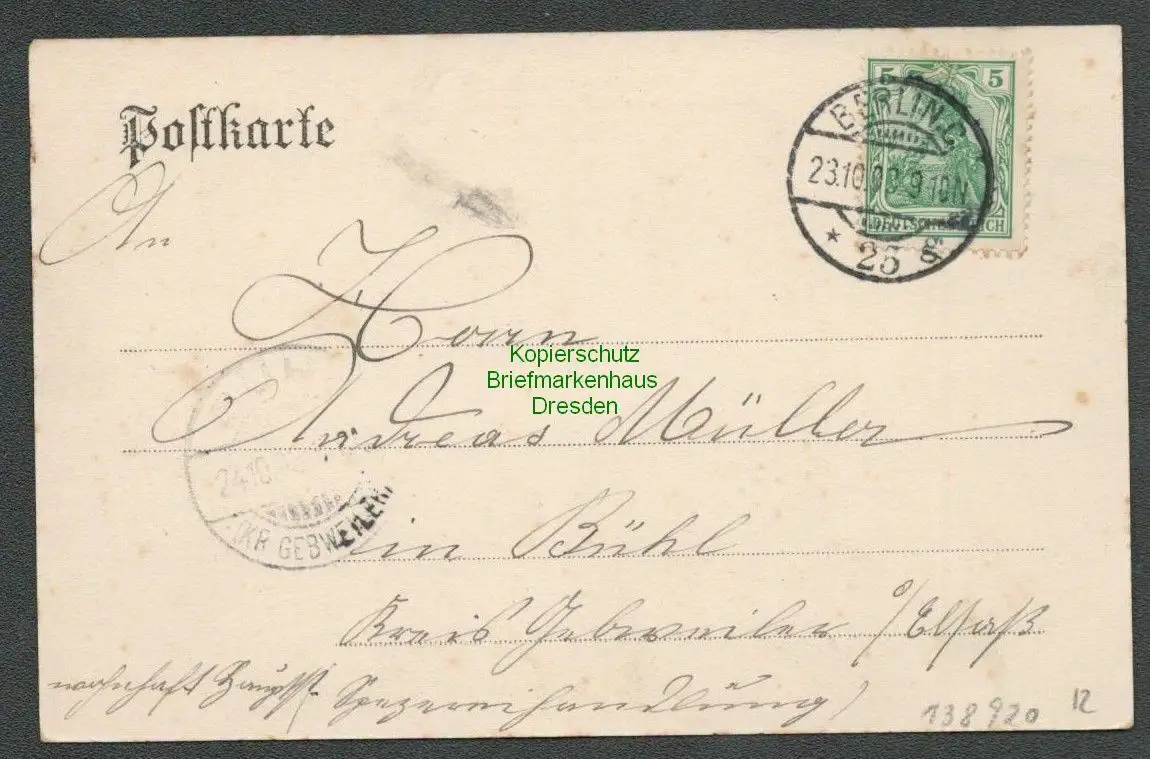 Postkarte
5 5
BERLIN.C.
23.10.03.9-10N
* 25 g
DEUTSCHES REICH
An
Herrn
Kopierschutz
Briefmarkenhaus
Dresden
Andreas Müller
24.10
(KR GEBWEILER)
in Bühl
Kreis Gebweiler /Elsaß
wohnhaft Hauptst. (Spezereihandlung)
138920 12